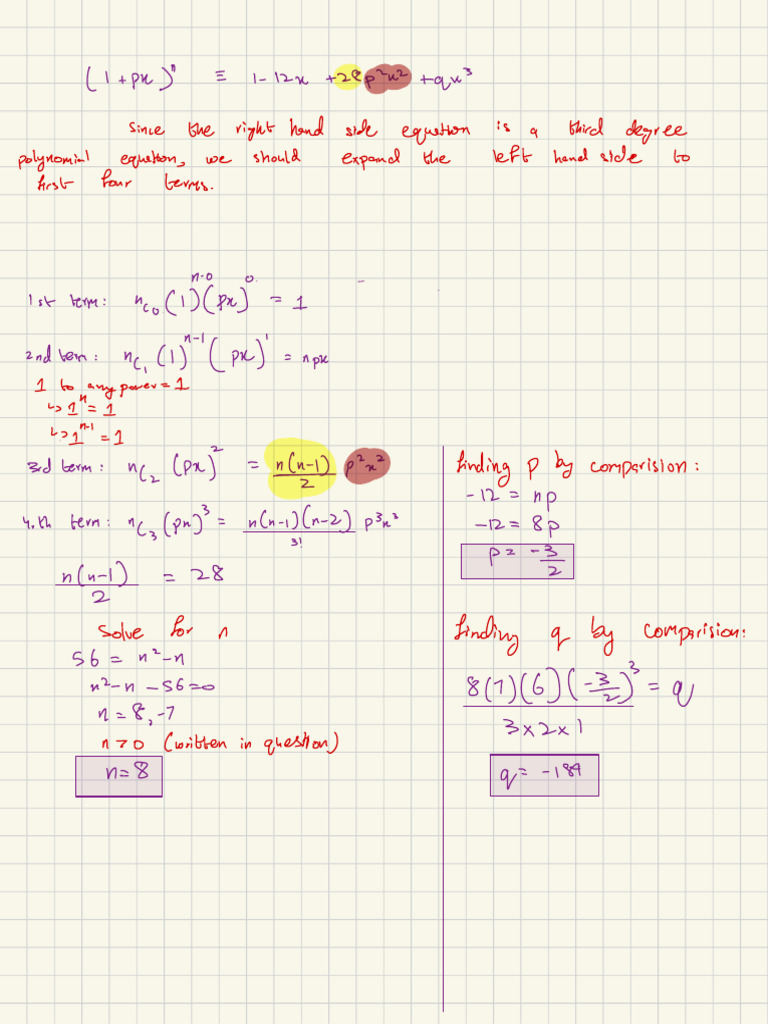 (1+px)ⁿ ≡ 1-12x +28p²x² +qx³
Since the right hand side equation is a third degree
polynomial equation, we should expand the left hand side to
first four terms.
1st term: nC₀ (1)ⁿ⁻⁰(px)⁰ = 1
2nd term: nC₁ (1)ⁿ⁻¹(px)¹ = npx
1 to any power = 1
↳ 1ⁿ = 1
↳ 1ⁿ⁻¹ = 1
3rd term: nC₂ (px)² = n(n-1)/2 p²x²
4th term: nC₃ (px)³ = n(n-1)(n-2)/3! p³x³
n(n-1)/2 = 28
Solve for n
56 = n²-n
n²-n-56=0
n = 8, -7
n>0 (written in question)
n=8
finding p by comparision:
-12 = np
-12 = 8p
p = -3/2
finding q by comparision:
8(7)(6)(-3/2)³/3×2×1 = q
q = -189